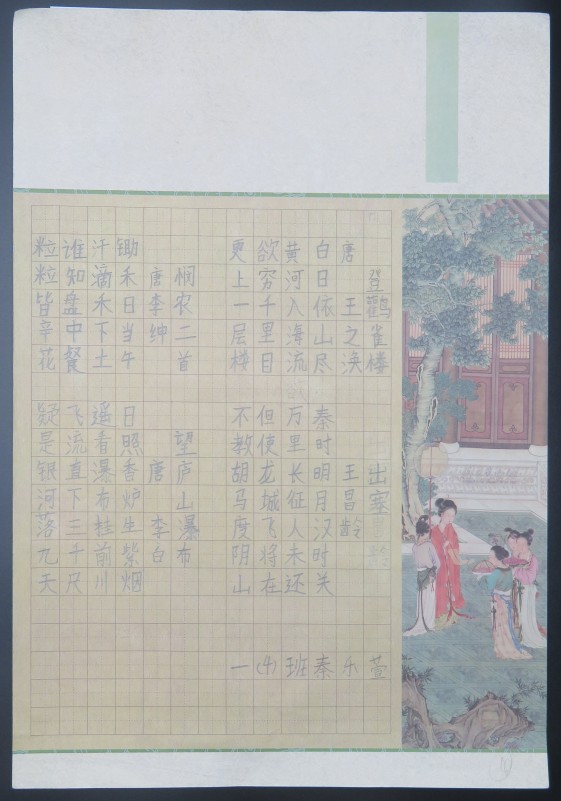 登鹳雀楼
唐 王之涣
白日依山尽
黄河入海流
欲穷千里目
更上一层楼
出塞
王昌龄
秦时明月汉时关
万里长征人未还
但使龙城飞将在
不教胡马度阴山
悯农二首
唐李绅
锄禾日当午
汗滴禾下土
谁知盘中餐
粒粒皆辛花
望庐山瀑布
唐 李白
日照香炉生紫烟
遥看瀑布挂前川
飞流直下三千尺
疑是银河落九天
一(4)班秦乐萱